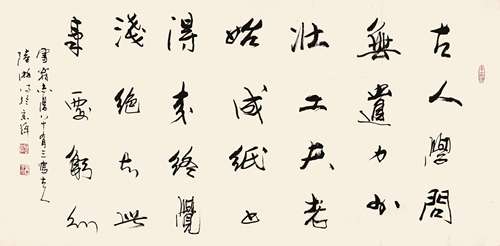 古人學問
無遺力少
壮工夫老
始成紙上
得來終覺
淺絕知此
事要躬行
八十有三
陸游